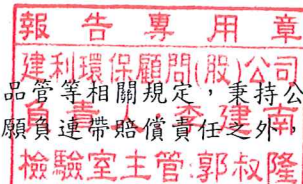 報告專用章
建利環保顧問(股)公司
品管等相關規定，秉持公
負責人:李建南
願負連帶賠償責任之外，
檢驗室主管:郭叔隆